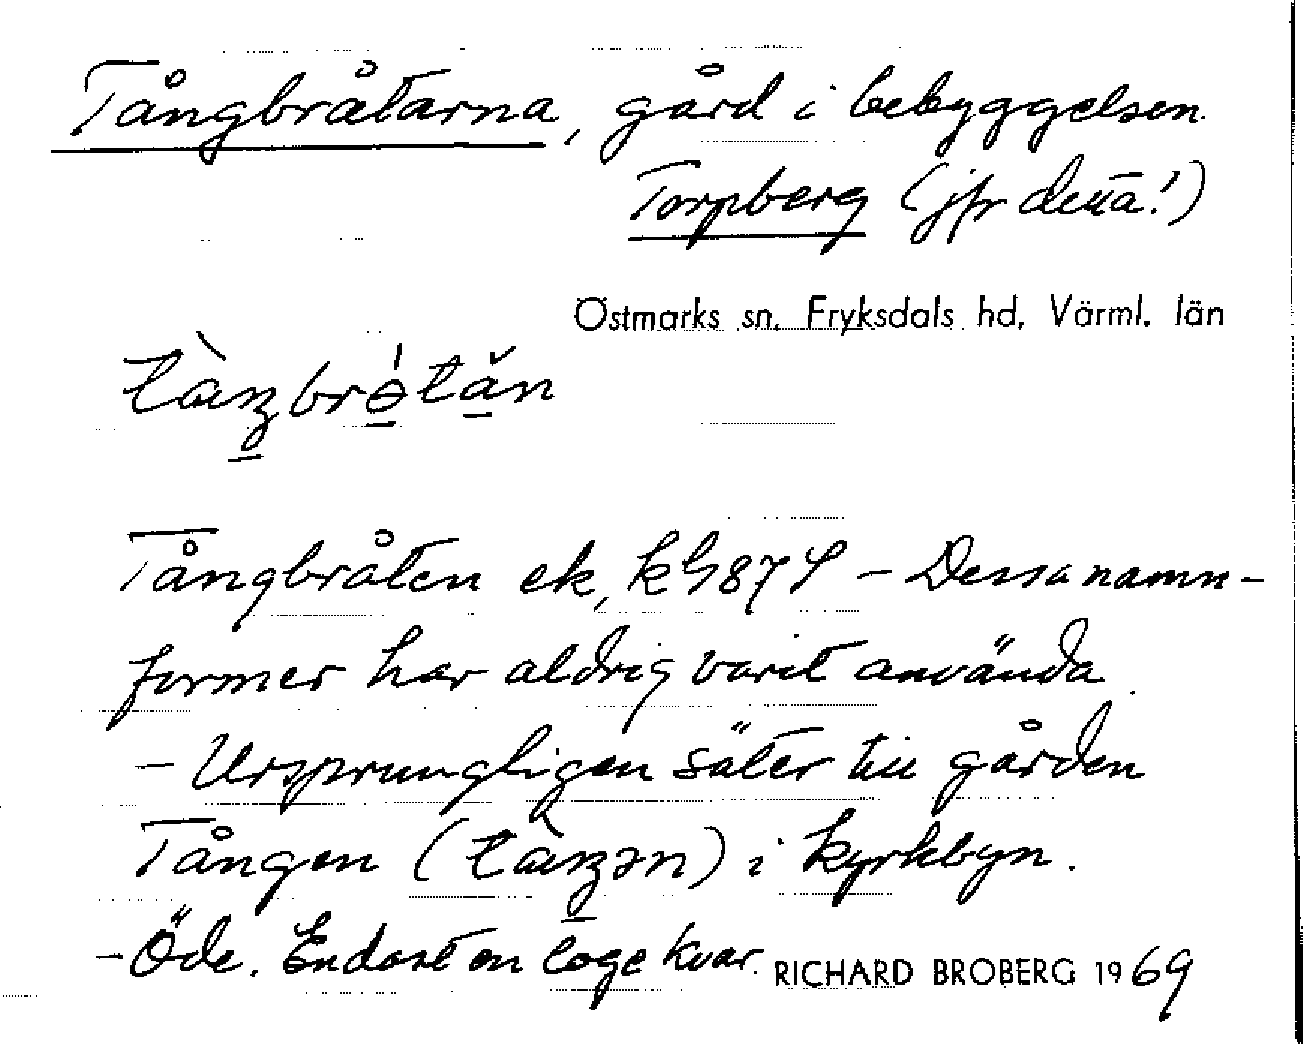 Tångbråtarna, gård i bebyggelsen
Torpberg (jfr detta!)
Östmarks sn. Fryksdals hd, Värml. län
Tångbråten ek, kG87S – Dessa namn-
former har aldrig varit använda
– Ursprungligen säter till gården
Tången ( ) i kyrkbyn.
– Öde. Endast en loge kvar.
RICHARD BROBERG 1969